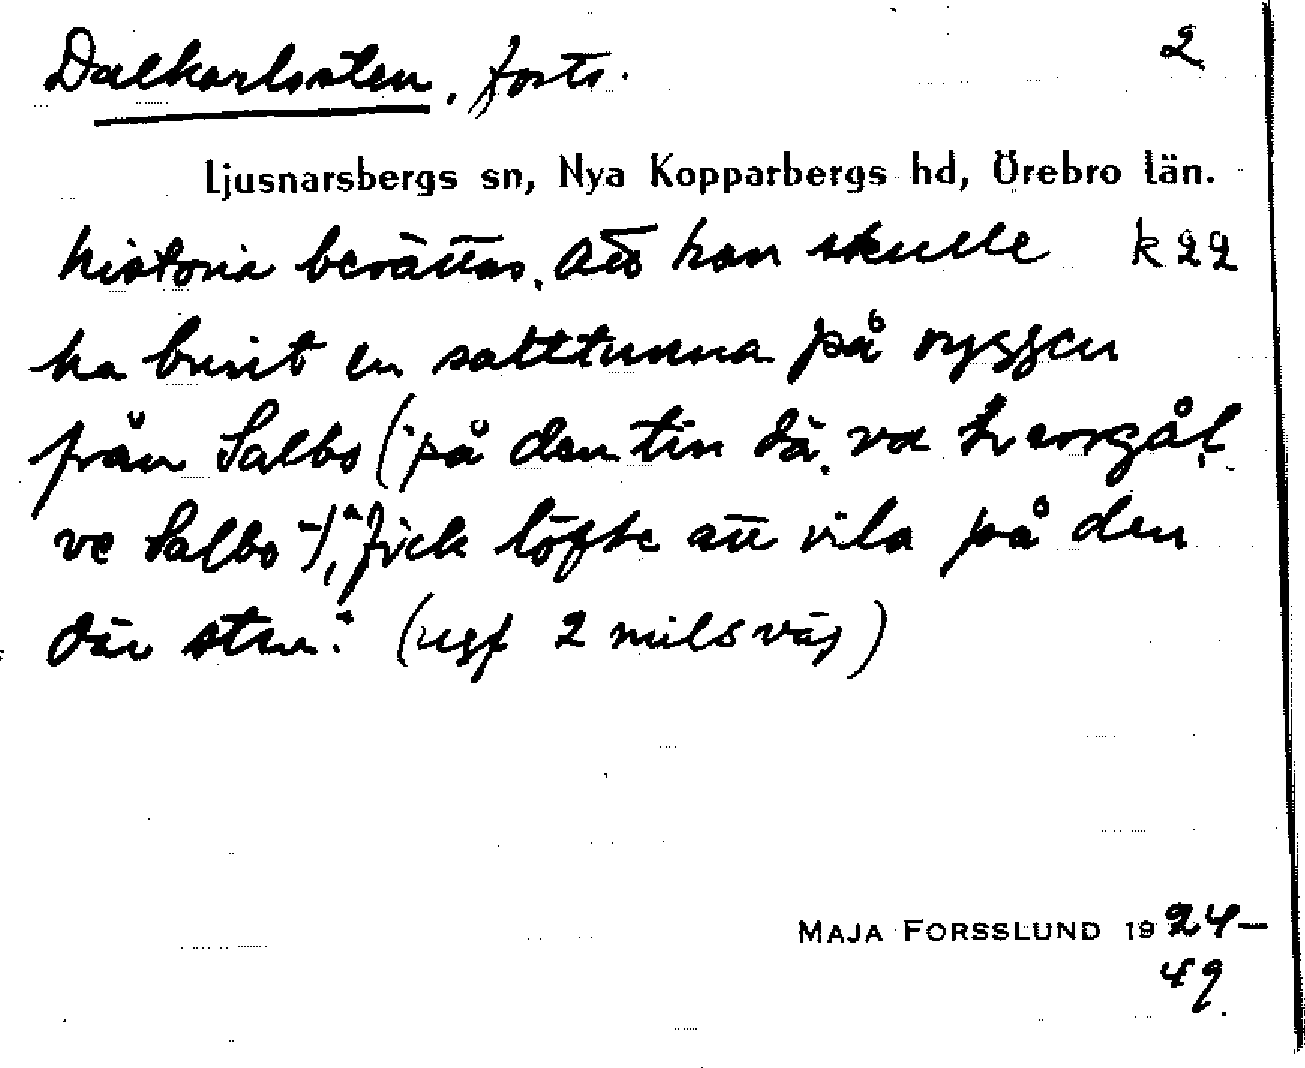 Dalkarlssten, forts. 2
Ljusnarsbergs sn, Nya Kopparbergs hd, Örebro län.
historia berättas. Att han skulle k 22
ha burit en salttunna på ryggen
från Salbo (på den tin dä va
ve Salbo-), fick löfte att vila på den
där sten." (ugf 2 mils väg)
MAJA FORSSLUND 1924–
49.